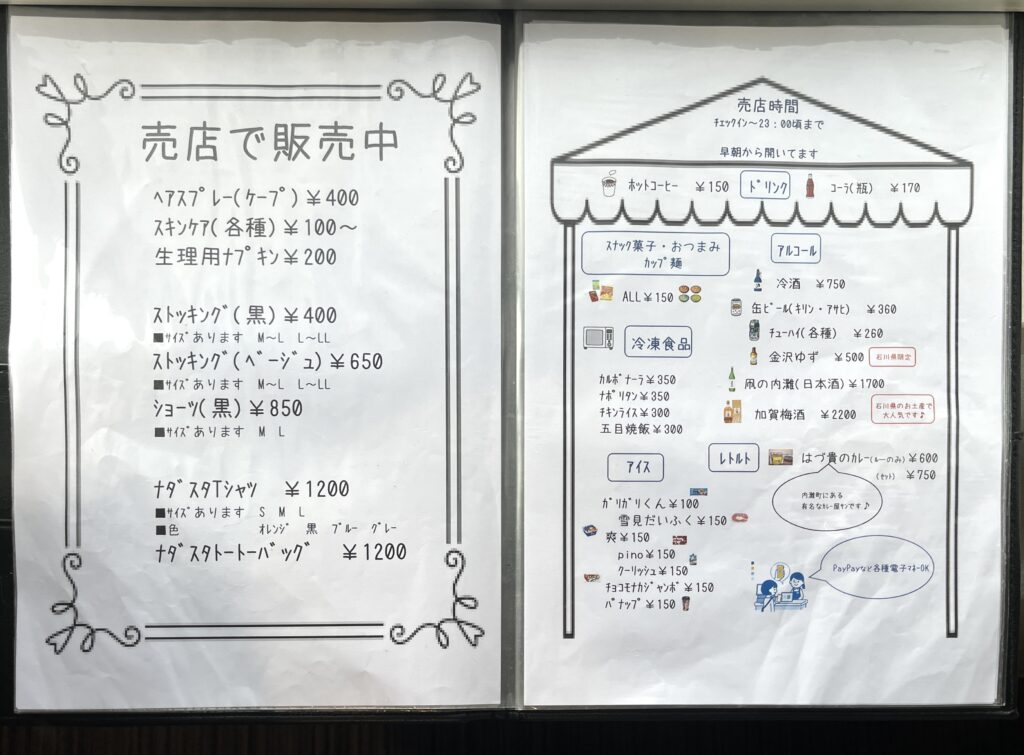 売店で販売中
ﾍｱｽﾌﾟﾚｰ(ｹｰﾌﾟ)￥400
ｽｷﾝｹｱ(各種)￥100～
生理用ﾅﾌﾟｷﾝ￥200
ｽﾄｯｷﾝｸﾞ(黒)￥400
■ｻｲｽﾞあります M～L L～LL
ｽﾄｯｷﾝｸﾞ(ﾍﾞｰｼﾞｭ)￥650
■ｻｲｽﾞあります M～L L～LL
ｼｮｰﾂ(黒)￥850
■ｻｲｽﾞあります M L
ﾅﾀﾞｽﾀTｼｬﾂ ￥1200
■ｻｲｽﾞあります S M L
■色 ｵﾚﾝｼﾞ 黒 ﾌﾞﾙｰ ｸﾞﾚｰ
ﾅﾀﾞｽﾀﾄｰﾄｰﾊﾞｯｸﾞ ￥1200
売店時間
ﾁｪｯｸｲﾝ～23：00頃まで
早朝から開いてます
ﾎｯﾄｺｰﾋｰ ￥150
ﾄﾞﾘﾝｸ
ｺｰﾗ(瓶) ￥170
ｽﾅｯｸ菓子・おつまみ
ｶｯﾌﾟ麺
ALL￥150
冷凍食品
ｶﾙﾎﾞﾅｰﾗ￥350
ﾅﾎﾟﾘﾀﾝ￥350
ﾁｷﾝﾗｲｽ￥300
五目焼飯￥300
ｱｲｽ
ｶﾞﾘｶﾞﾘくん￥100
雪見だいふく￥150
爽￥150
pino￥150
ｸｰﾘｯｼｭ￥150
ﾁｮｺﾓﾅｶｼﾞｬﾝﾎﾞ￥150
ﾊﾞﾅｯﾌﾟ￥150
ｱﾙｺｰﾙ
冷酒 ￥750
缶ﾋﾞｰﾙ(ｷﾘﾝ・ｱｻﾋ) ￥360
ﾁｭｰﾊｲ(各種) ￥260
金沢ゆず ￥500
石川県限定
凪の内灘(日本酒)￥1700
加賀梅酒 ￥2200
石川県のお土産で
大人気です♪
ﾚﾄﾙﾄ
はづ貴のｶﾚｰ(ﾙｰのみ)￥600
(ｾｯﾄ) ￥750
内灘町にある
有名なｶﾚｰ屋ｻﾝです♪
PayPayなど各種電子ﾏﾈｰOK